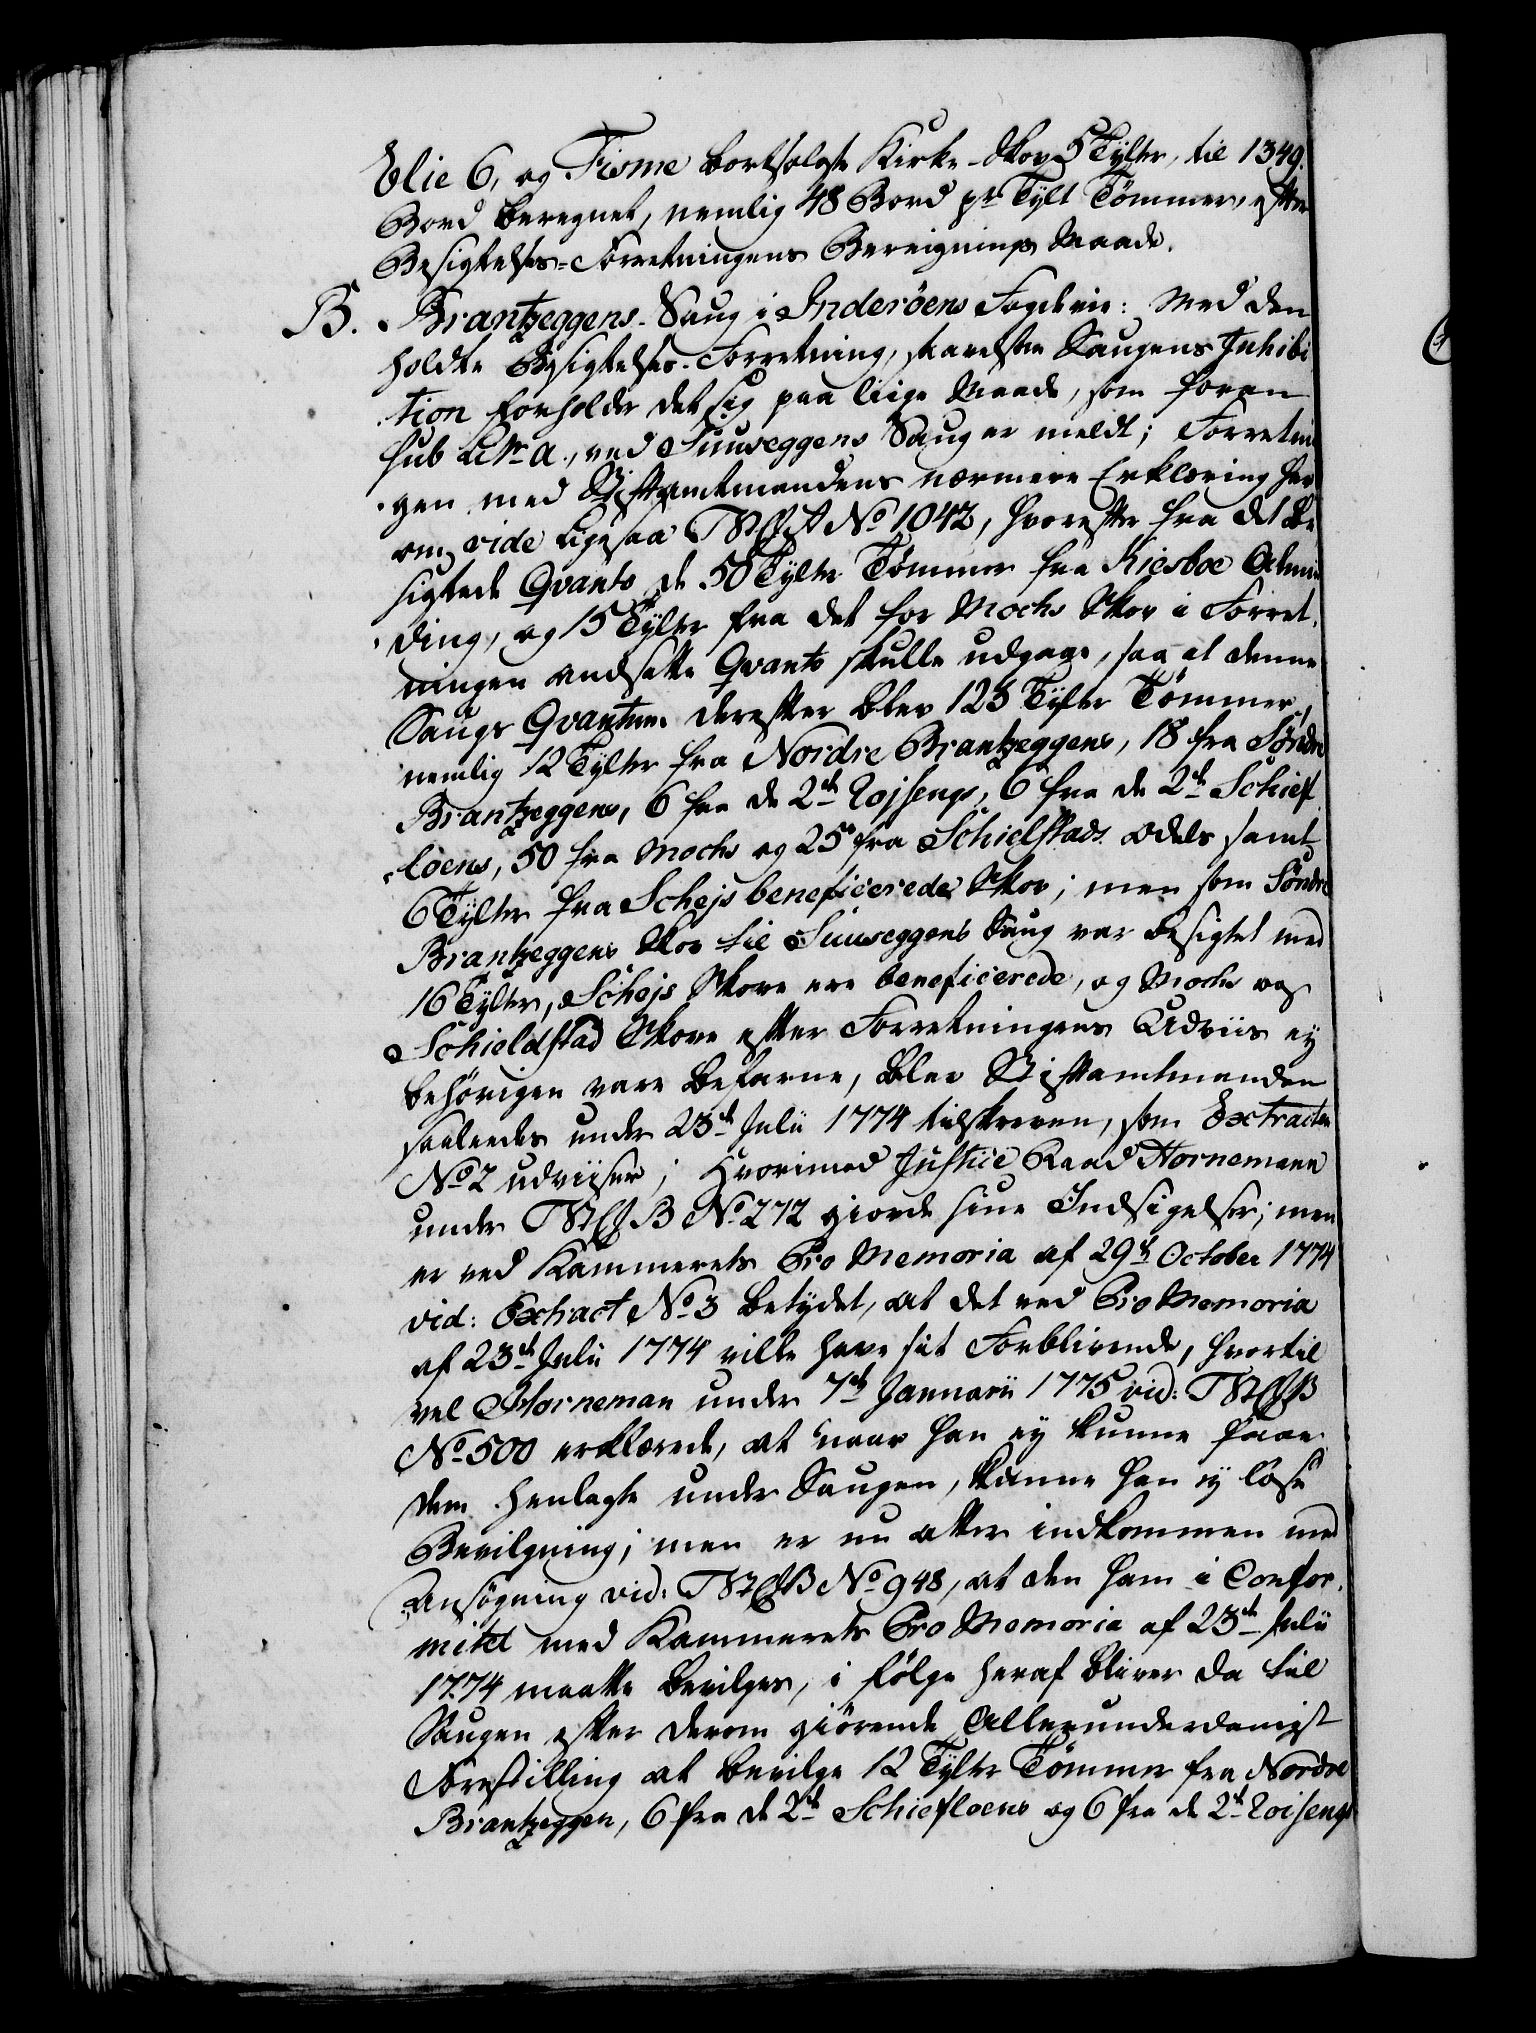 Elie 6, og Fisme bortsolgte Kirke-Skov 5 Tylter, til 1349.
Bord beregnet, nemlig 48 Bord pr Tylt Tømmer, efter
Besigtelses-Forretningens Bereignings Maade.
B. Brantzeggens-Saug i Inderöens Fogderie: Med den
holdte Besigtelses-Forretning, Saugens Inhibi
tion forholder det sig paa liige Maade, som foran
sub Litr. a., ved Suuseggens Saug er meldt; Forretnin
gen med Stiftamtmandens nærmere Erklæring her
om, vide ligesaa No 1042, hvorefter fra det be
sigtede Qvanto de 50 Tylter Tømmer fra Kiesboe Almin
ding, og 15 Tylter fra det for Mochs Skov i Forret
ningen ansatte Qvanto skulle udgaae, saa at denne
Saugs Qvantum derefter blev 123 Tylter Tømmer,
nemlig 12 Tylter fra Nordre Brantzeggens, 18 fra Söndre
Brantzeggens, 6 fra de 2de Rojsengs, 6 fra de 2de Schief
loens, 50 fra Mochs og 25 fra Schielstads odels samt
6 Tylter fra Schejs beneficerede Skov; men som Söndre
Brantzeggens Skov til Suuseggens Saug var besigtet med
16 Tylter, Schejs Skove ere beneficerede, og Mochs og
Schieldstad Skove efter Forretningens Udviis ey
behörigen vare befarne, blev Stiftamtmanden
saaledes under 23de Julii 1774 tilskreven, som Extracten
No 2 udviiser; Hvorimod Justice Raad Hornemann
under B No 272 giorde sine Indsigelser; men
er ved Kammerets Pro Memoria af 29de October 1774
vid: Extract No 3 betydet, at det ved Pro Memoria
af 23de Julii 1774 ville have sit Forblivende, hvortil
vel Horneman under 7de Januarii 1775 vid: B
No 500 erklærede, at naar han ey kunne faae
dem henlagte under Saugen, kunne han ey löse
Bevilgning; men er nu atter indkommen med
Ansögning vid: B No 948, at den ham i Confor
mitet med Kammerets Pro Memoria af 23de Julii
1774 maatte bevilges, i fölge heraf bliver da til
Saugen efter derom giörende Allerunderdanigst
Forestilling at bevilge 12 Tylter Tømmer fra Nordre
Brantzeggen, 6 fra de 2de Schiefloens og 6 fra de 2de Roisengs